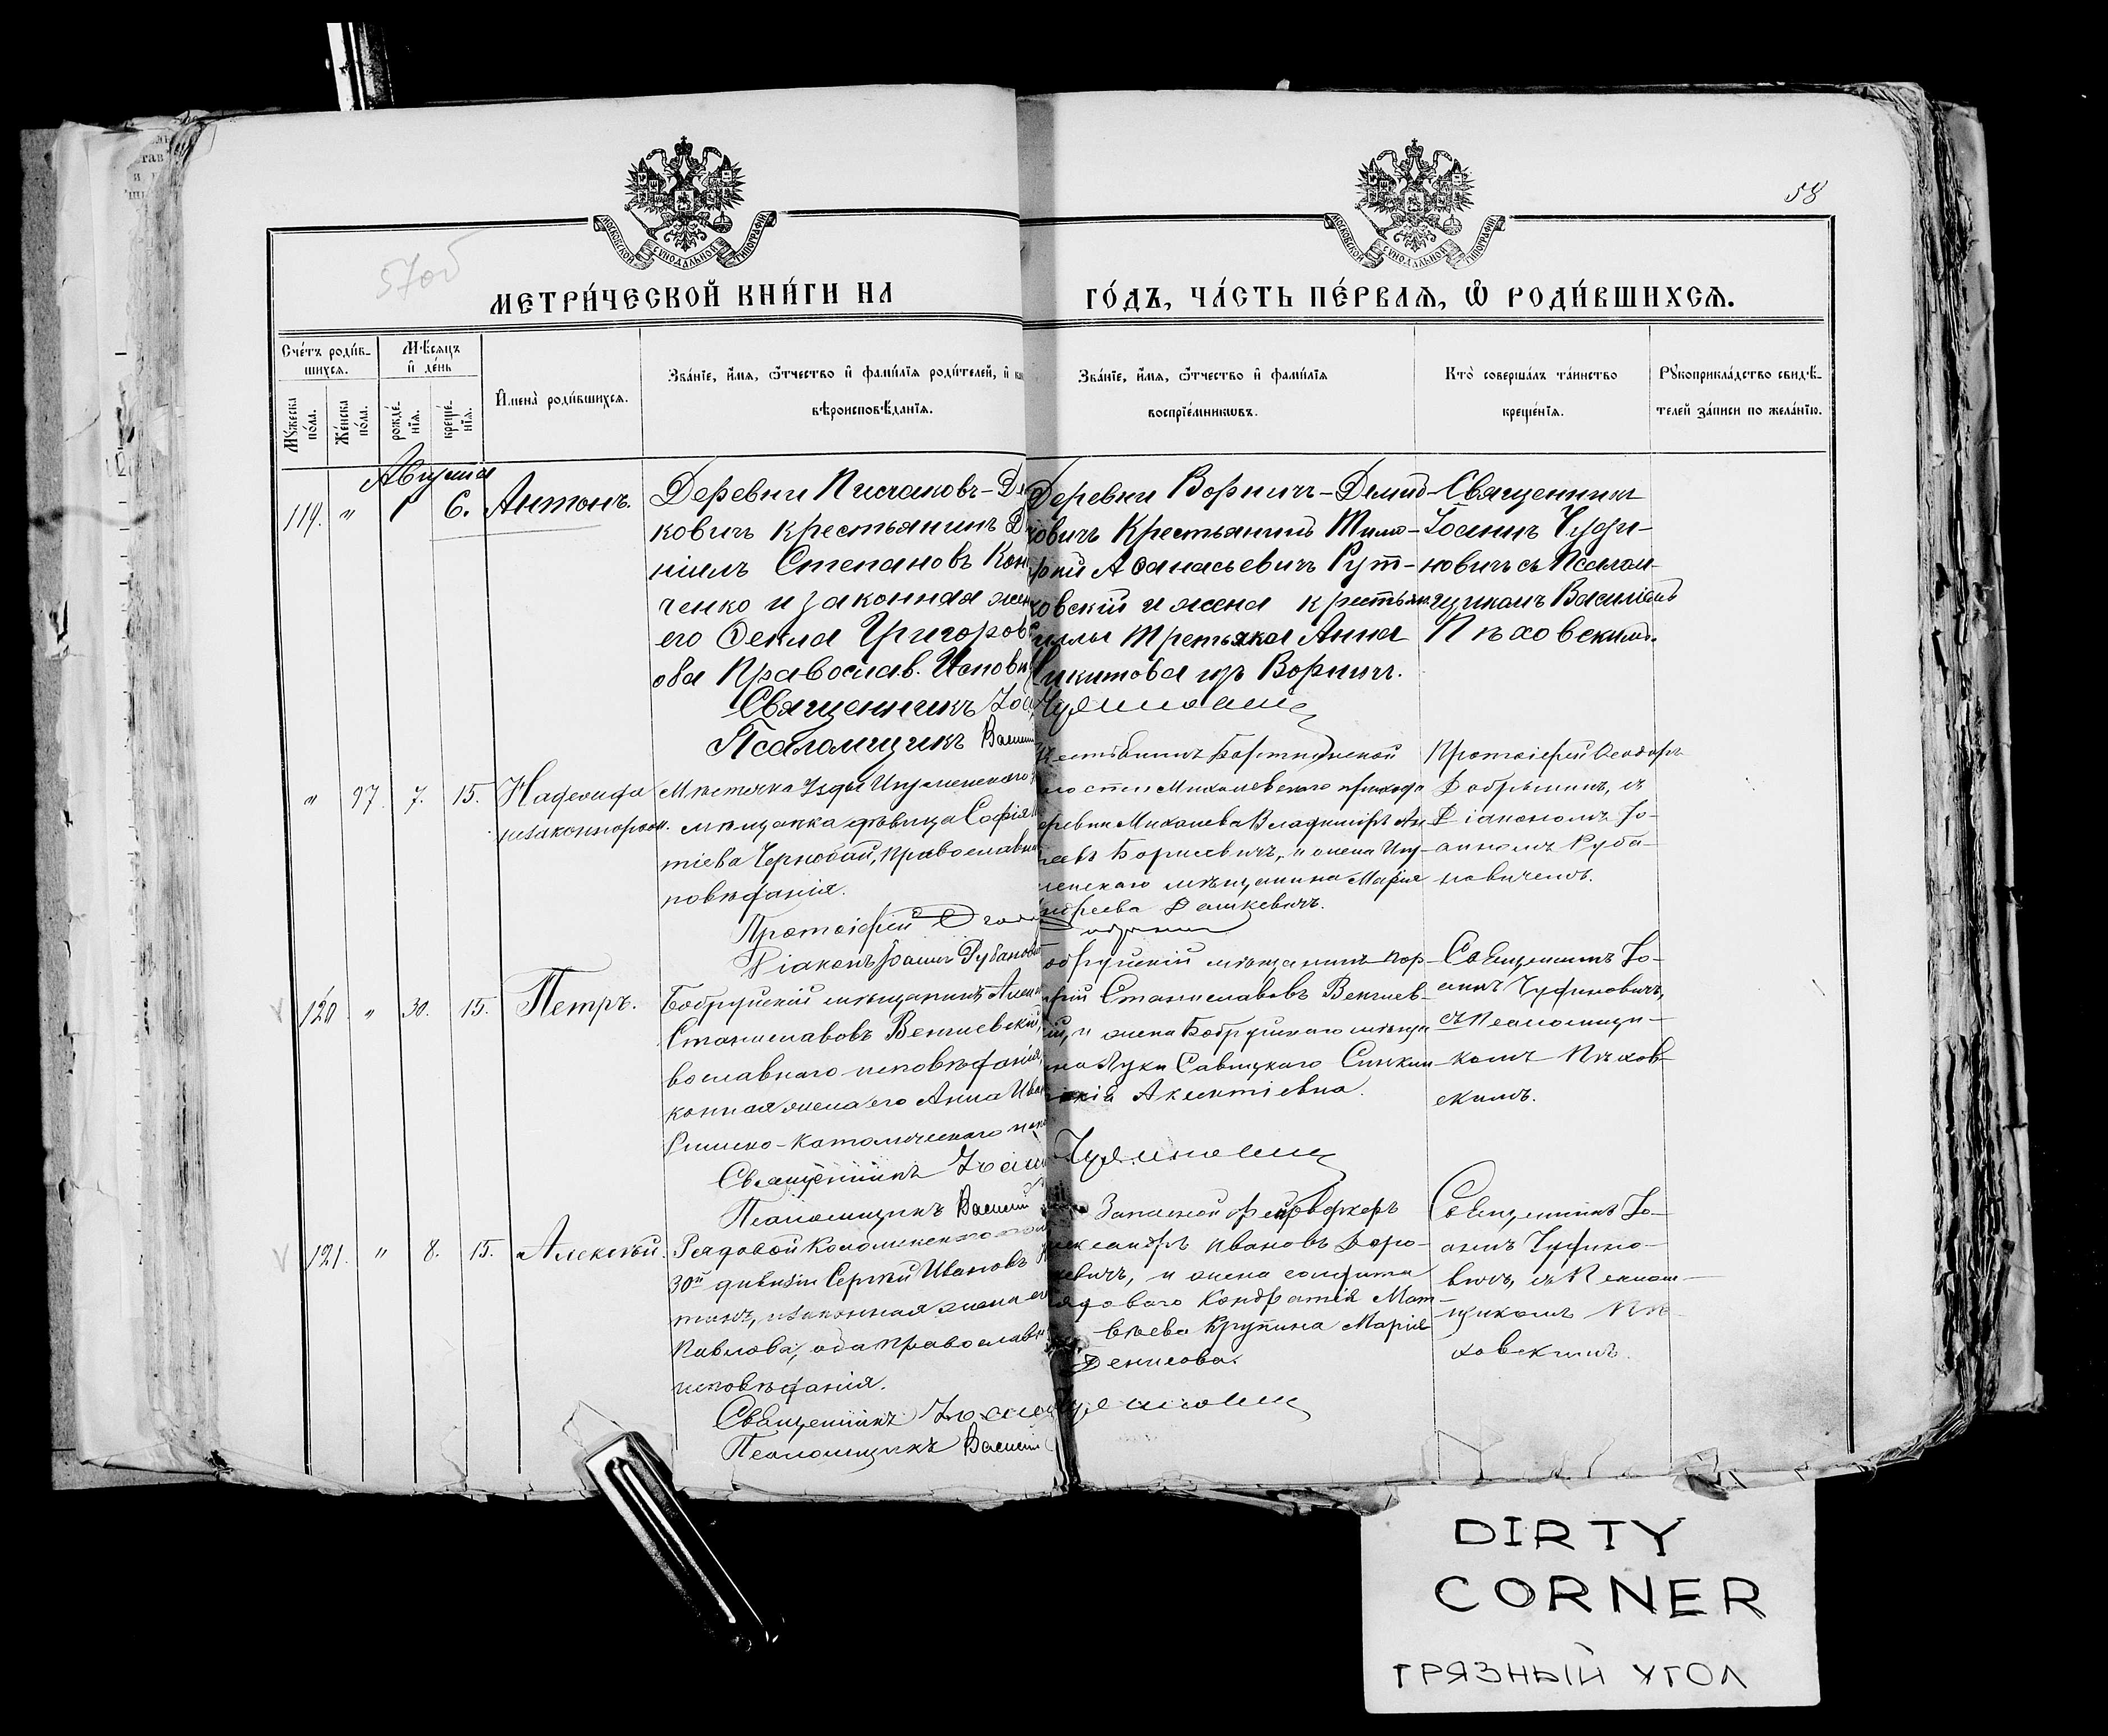 58
57об
МОСКОВСКОЙ СѴНОДАЛЬНОЙ ТИПОГРАФІИ
МОСКОВСКОЙ СѴНОДАЛЬНОЙ ТИПОГРАФІИ
МЕТРИ́ЧЕСКОЙ КНИ́ГИ НА
ГО́ДЪ, ЧА́СТЬ ПЕ́РВАѦ, Ѡ РОДИ́ВШИХСѦ.
Сче́тъ роди́в-
шихсѧ.
Мѣ́сѧцъ
и҆ де́нь
Мꙋ́жеска по́ла.
Же́нска по́ла.
рожде́-
нїѧ.
креще́-
нїѧ.
И҆мена̀ роди́вшихсѧ.
Зва́нїе, и҆́мѧ, ѻ҆́тчество и҆ фами́лїѧ роди́телей, и҆
вѣроисповѣ́данїѧ.
Зва́нїе, и҆́мѧ, ѻ҆́тчество и҆ фами́лїѧ
воспрїе́мникѡвъ.
Кто̀ соверша́лъ та́инство
креще́нїѧ.
Рꙋкоприкла́дство свидѣ́-
телей за́писи по жела́нїю.
Августа
119. " 1 6. Антонъ.
Деревни Писчаковъ-Де
ковичъ крестьянинъ
ніилъ Степановъ Кон
ченко и законная жен
его Фекла Григоров
оба Православ. Исповѣ
Священникъ Іоа
Псаломщикъ Васили
Деревни Ворничъ-Демид-
ковичъ Крестьянинъ Тимо-
фей Афанасьевичъ Рут-
ковскій и жена крестьян.
Третьяка Анна
Никитова изъ Ворнич.
Священникъ
Іоаннъ Чуди-
новичъ съ Псалом-
щикомъ Василіемъ
Пѣховскимъ.
" 97. 7. 15. Надежда
незаконнорож.
Мѣстечка Узды Игуменскаго
мѣщанка дѣвица Софія
тіева Чернобай, православн
повѣданія.
Протоіерей
Діаконъ Іоаннъ Рубанович
волости Михалевскаго прихода
деревни Михалева Владиміръ Ан
Борисевичъ, и жена Игу-
менскаго мѣщанина Марія
Андреева Дашкевичъ.
Протоіерей Ѳеодоръ
Добрынинъ, съ
Діакономъ Іо-
анномъ Руба-
новичемъ.
120 " 30. 15. Петръ.
Бобруйскій мѣщанинъ
Станиславовъ Венгиевскій,
вославнаго исповѣданія,
конная жена его Анна Иван
Римско-католическаго
Священникъ Іоан
Псаломщикъ Васили
Бобруйскій мѣщанинъ Пор-
фирій Станиславовъ Венгиев-
скій, и жена Бобруйскаго мѣща
нина Луки Савицкаго
Акентіевна.
Священникъ Іо-
аннъ Чудиновичъ,
съ Псаломщи-
комъ Пѣхов-
скимъ.
121. " 8. 15. Алексѣй.
Рядовой Коломенскаго полка
30й дивизіи Сергѣй Ивановъ
законная жена его
Павлова, оба православн
исповѣданія.
Священникъ Іоанн
Псаломщикъ Васили
Запасной фейерверкеръ
Александръ Ивановъ Доро-
жевичъ, и жена солдата
рядоваго Кондратія Мат-
вѣева Крупина Марія
Денисова.
Священникъ Іо-
аннъ Чудино-
вичъ, съ Псалом-
щикомъ Пѣ-
ховскимъ.
DIRTY
CORNER
ГРЯЗНЫЙ УГОЛ